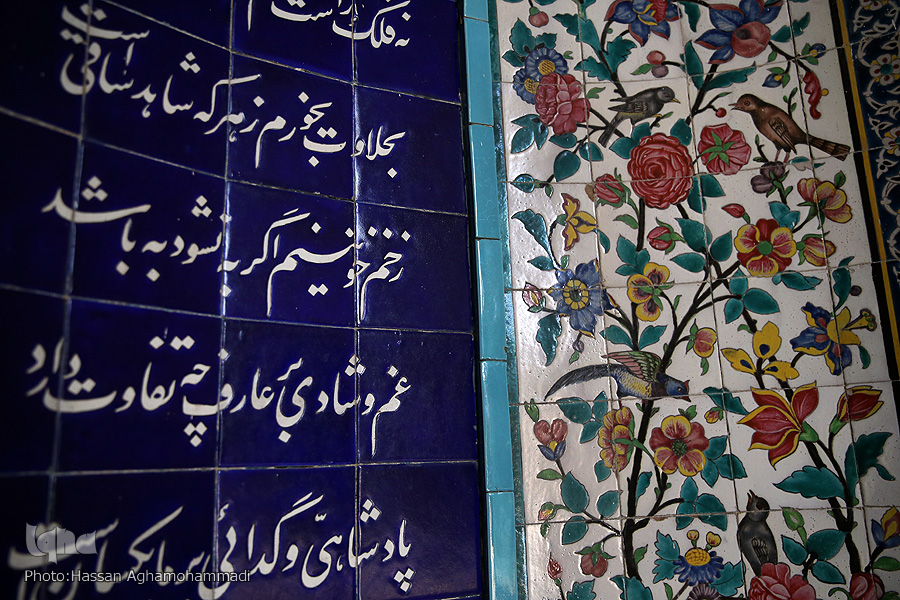 نه فلک راست
بحلاوت بخورم زهر که شاهد ساقی است
زخم خونینم اگر به نشود به باشد
غم و شادی بر عارف چه تفاوت دارد
پادشاهی و گدائی بر ما یکسان است
iqna
Photo:Hassan Aghamohammadi